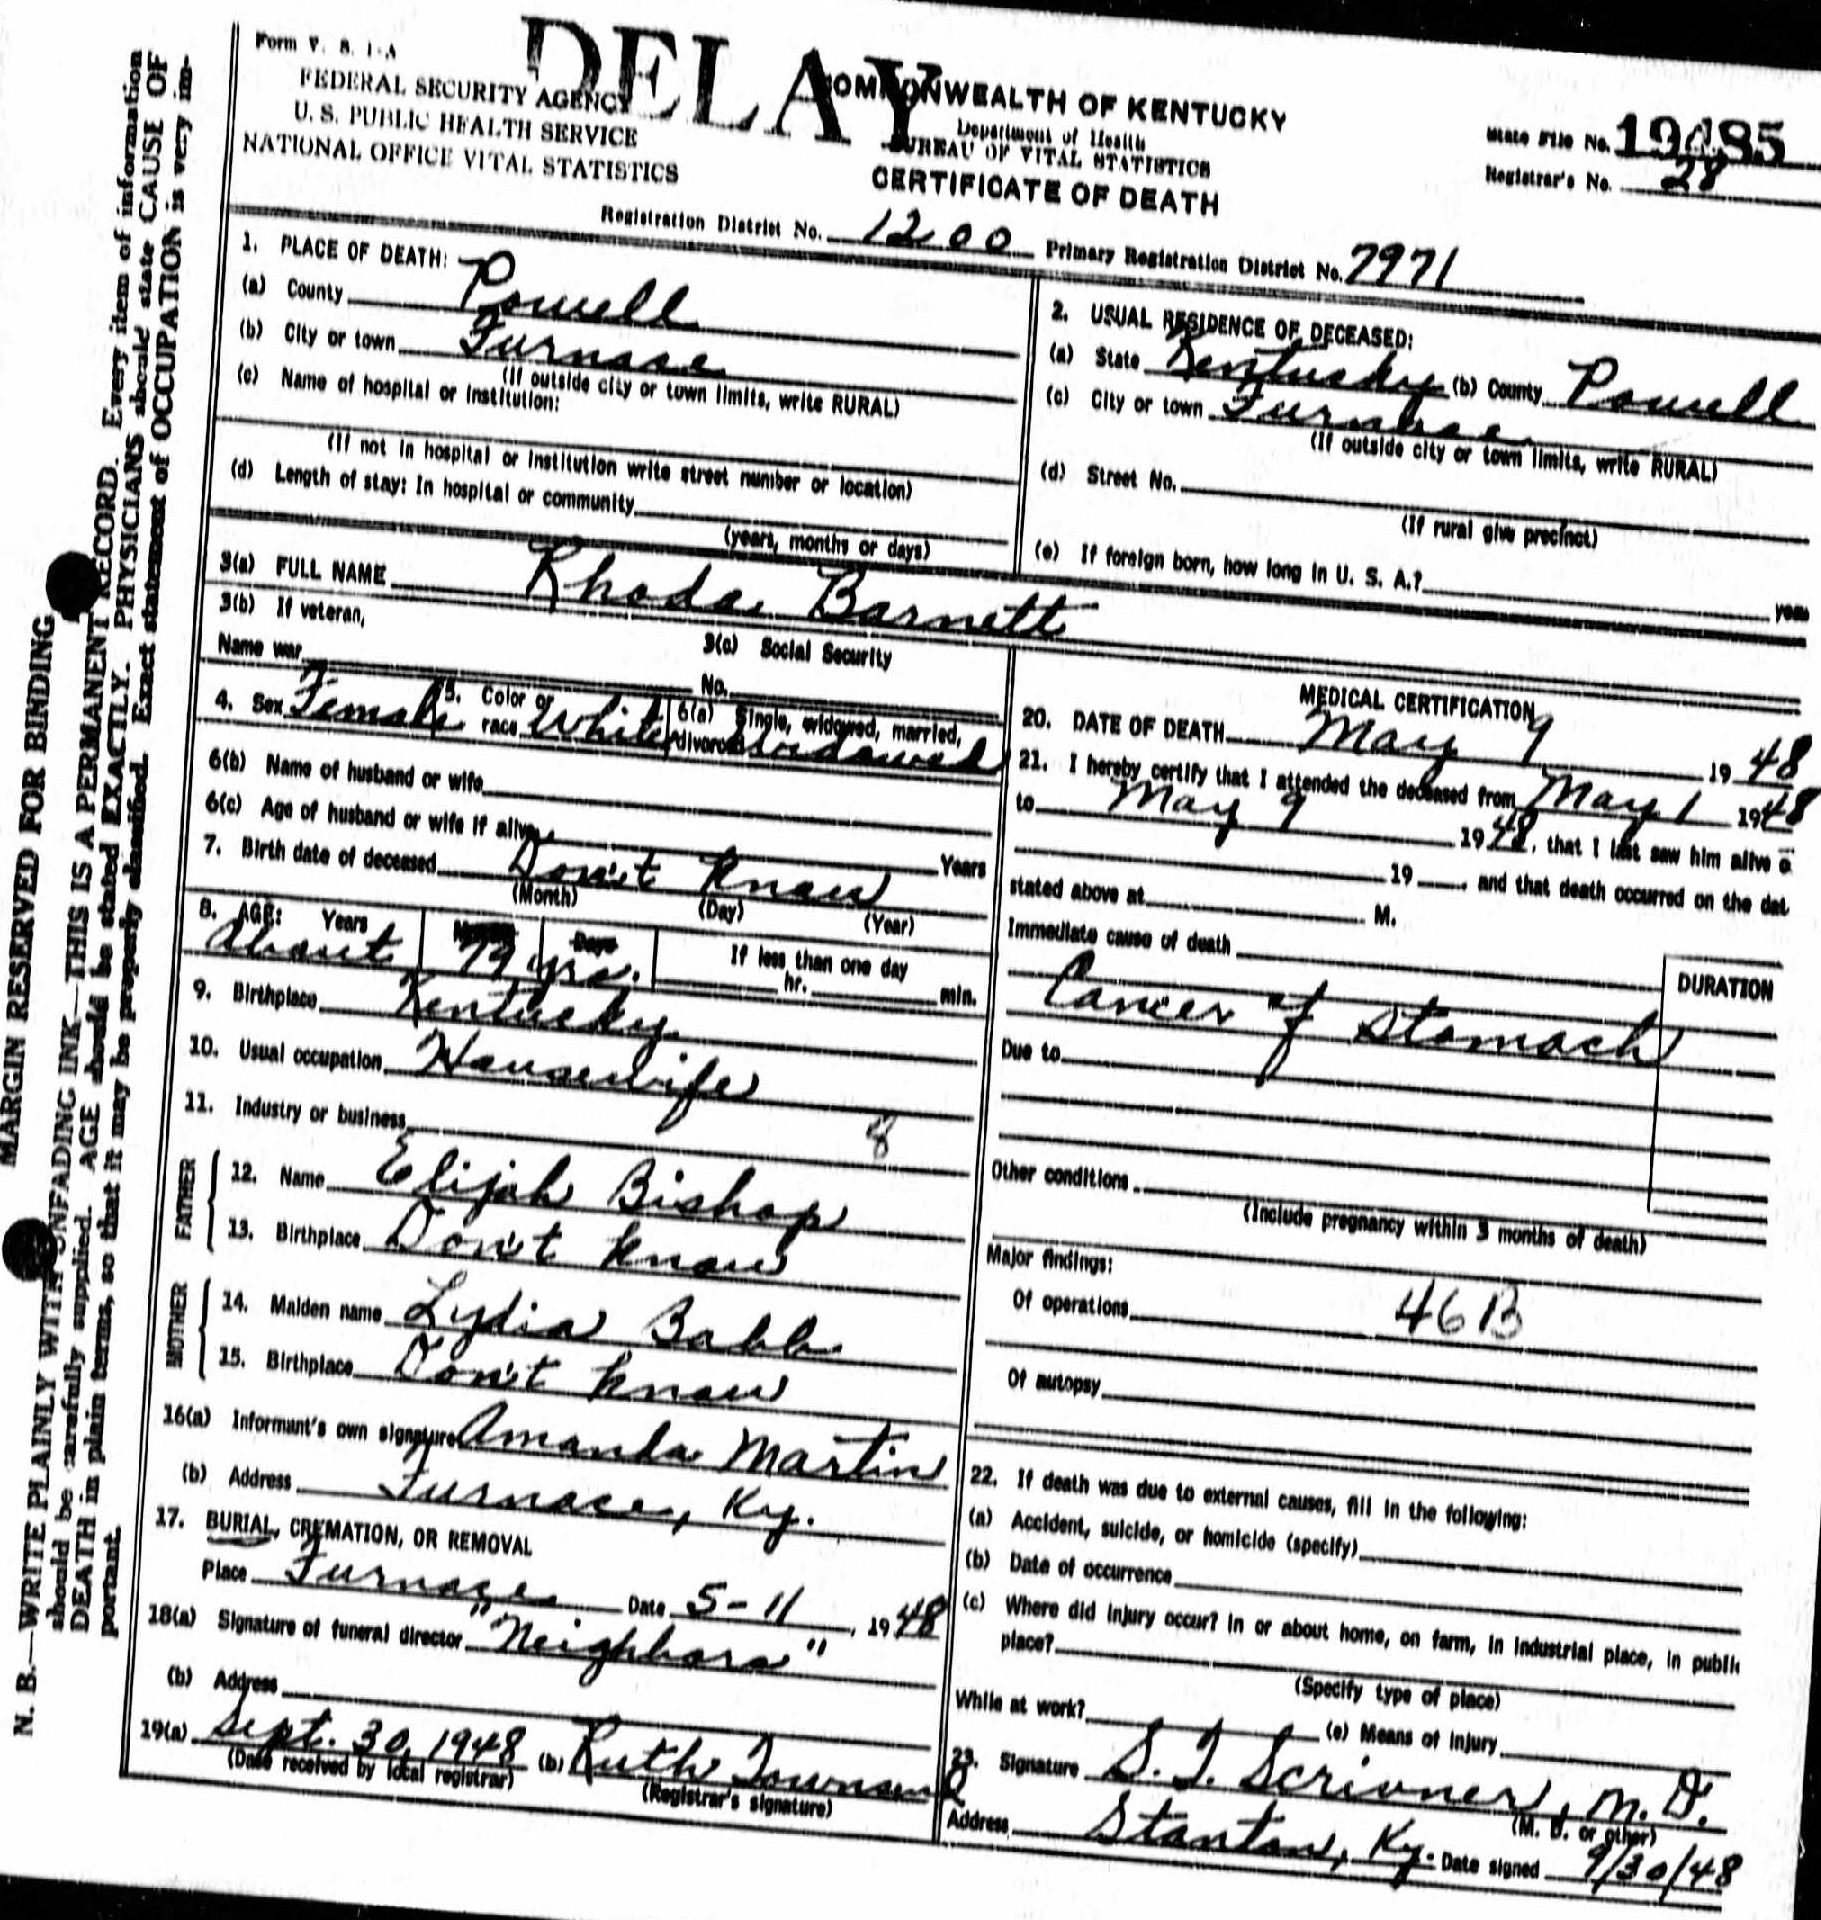 DELAY
Form V. S. 1-A
FEDERAL SECURITY AGENCY
U. S. PUBLIC HEALTH SERVICE
NATIONAL OFFICE VITAL STATISTICS
COMMONWEALTH OF KENTUCKY
Department of Health
BUREAU OF VITAL STATISTICS
CERTIFICATE OF DEATH
State File No. 19485
Registrar's No. 28
Registration District No. 1200 Primary Registration District No. 7971
1. PLACE OF DEATH:
(a) County Powell
(b) City or town Furnace
(If outside city or town limits, write RURAL)
(c) Name of hospital or institution:
(If not in hospital or institution write street number or location)
(d) Length of stay: In hospital or community
(years, months or days)
2. USUAL RESIDENCE OF DECEASED:
(a) State Kentucky (b) County Powell
(c) City or town Furnace
(If outside city or town limits, write RURAL)
(d) Street No.
(If rural give precinct)
(e) If foreign born, how long in U. S. A.? years
3(a) FULL NAME Rhoda Barnett
3(b) If veteran,
Name war
3(c) Social Security
No.
4. Sex Female 5. Color or race White 6(a) Single, widowed, married, divorced Widowed
6(b) Name of husband or wife
6(c) Age of husband or wife if alive Years
7. Birth date of deceased Don't Know
(Month) (Day) (Year)
8. AGE: Years Months Days If less than one day
About 79 yrs. hr. min.
9. Birthplace Kentucky
10. Usual occupation Housewife
11. Industry or business
8
FATHER
12. Name Elijah Bishop
13. Birthplace Don't know
MOTHER
14. Maiden name Lydia Babb
15. Birthplace Don't know
16(a) Informant's own signature Amanda Martin
(b) Address Furnace, Ky.
17. BURIAL, CREMATION, OR REMOVAL
Place Furnace Date 5-11, 1948
18(a) Signature of funeral director "Neighbors"
(b) Address
19(a) Sept. 30, 1948 (b) Ruth Townsend
(Date received by local registrar) (Registrar's signature)
MEDICAL CERTIFICATION
20. DATE OF DEATH May 9 1948
21. I hereby certify that I attended the deceased from May 1 1948
to May 9 1948, that I last saw him alive o
19 , and that death occurred on the dat
stated above at M.
Immediate cause of death
DURATION
Cancer of Stomach
Due to
Other conditions
(Include pregnancy within 3 months of death)
Major findings:
Of operations 46B
Of autopsy
22. If death was due to external causes, fill in the following:
(a) Accident, suicide, or homicide (specify)
(b) Date of occurrence
(c) Where did injury occur? In or about home, on farm, in industrial place, in public
place?
(Specify type of place)
While at work? (e) Means of injury
23. Signature S. T. Scrivner, M. D.
(M. D. or other)
Address Stanton, Ky. Date signed 9/30/48
MARGIN RESERVED FOR BINDING
N. B.—WRITE PLAINLY WITH UNFADING INK—THIS IS A PERMANENT RECORD. Every item of information
should be carefully supplied. AGE should be stated EXACTLY. PHYSICIANS should state CAUSE OF
DEATH in plain terms, so that it may be properly classified. Exact statement of OCCUPATION is very im-
portant.